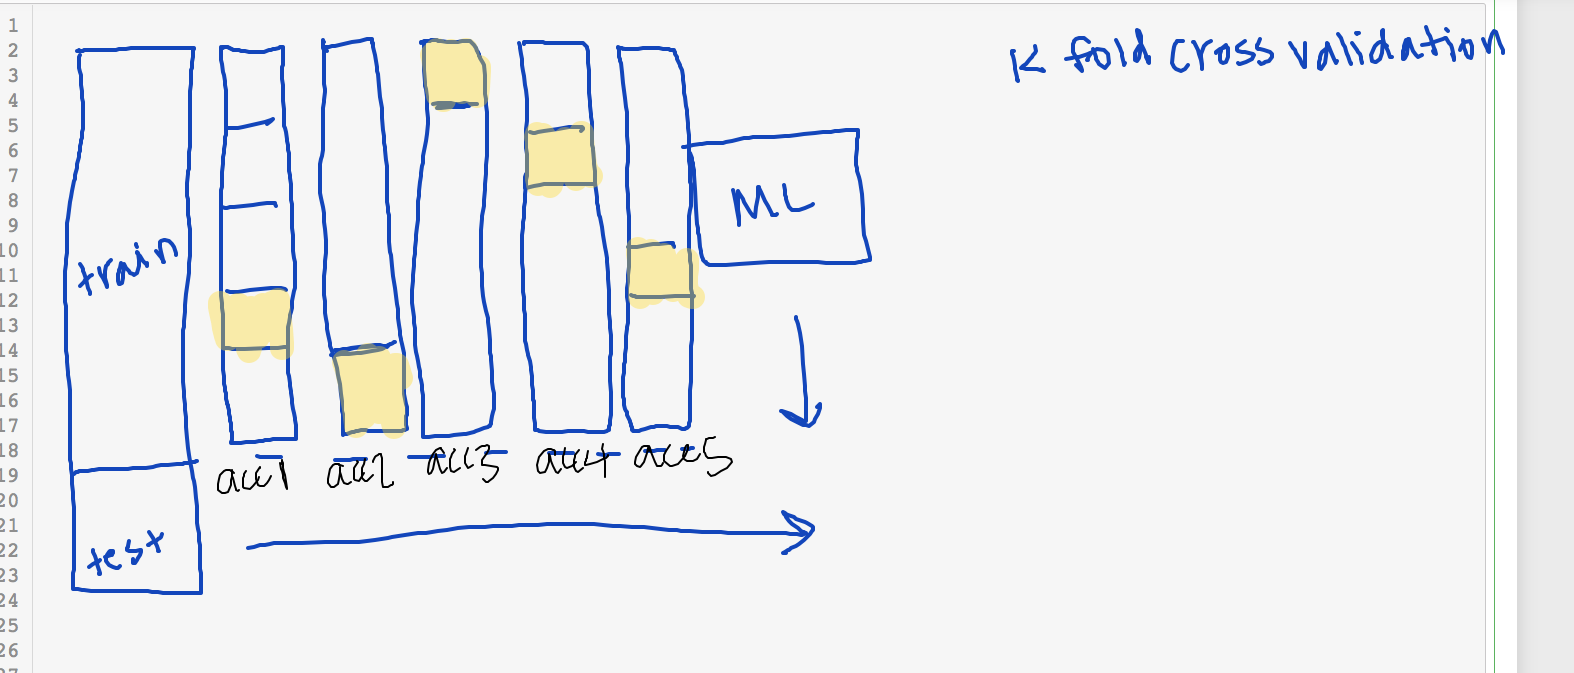 1
2
3
4
5
6
7
8
9
10
11
12
13
14
15
16
17
18
19
20
21
22
23
24
25
26
K fold cross validation
ML
train
acc1 acc2 acc3 acc4 acc5
test